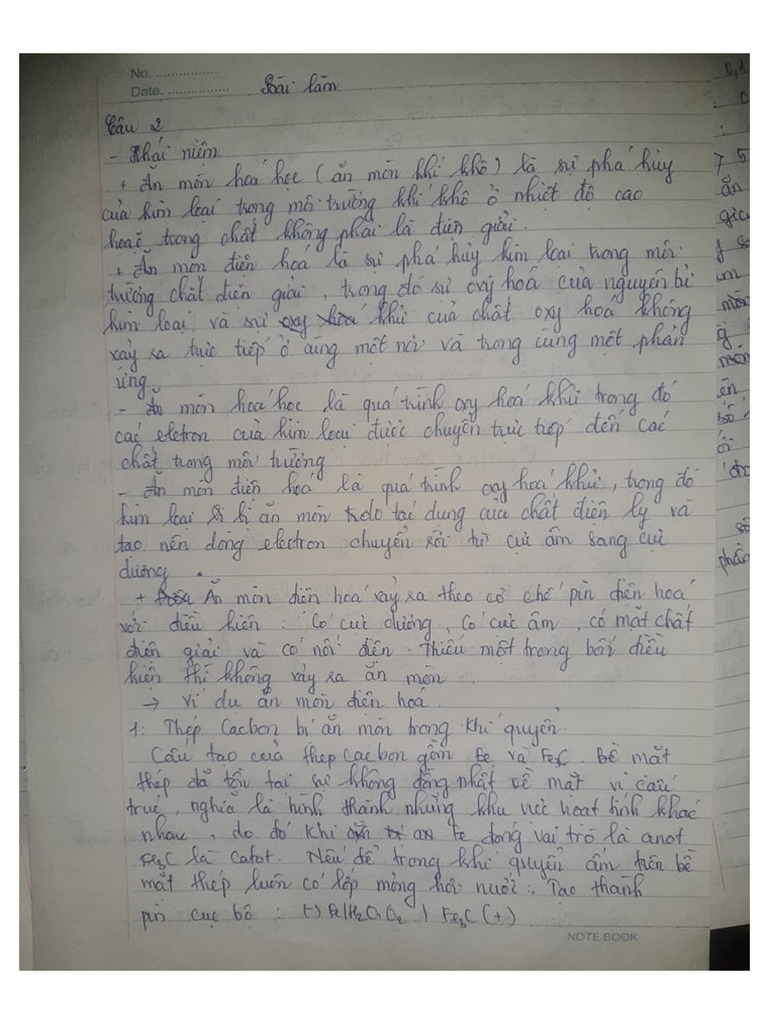 No. ................
Date. ................
Bài làm
Câu 2
- Khái niệm
+ Ăn mòn hoá học (ăn mòn khí khô) là sự phá hủy
của kim loại trong môi trường khí khô ở nhiệt độ cao
hoặc trong chất không phải là điện giải.
+ Ăn mòn điện hoá là sự phá hủy kim loại trong môi
trường chất điện giải, trong đó sự oxy hoá của nguyên bử
kim loại và sự oxy hoá khử của chất oxy hoá không
xảy ra trực tiếp ở cùng một nơi và trong cùng một phản
ứng.
- Ăn mòn hoá học là quá trình oxy hoá khử trong đó
các elctron của kim loại được chuyển trực tiếp đến các
chất trong môi trường
- Ăn mòn điện hoá là quá trình oxy hoá khử, trong đó
kim loại bị ăn mòn do tác dụng của chất điện ly và
tạo nên dòng electron chuyển dời từ cực âm sang cực
dương.
+ Ăn mòn điện hoá xảy ra theo cơ chế pin điện hoá
với điều kiện: Có cực dương, Có cực âm, có mặt chất
điện giải và có nối điện. Thiếu một trong bốn điều
kiện thì không xảy ra ăn mòn.
→ ví dụ ăn mòn điện hoá.
1: Thép Cacbon bị ăn mòn trong khí quyển.
Cấu tạo của thép cacbon gồm Fe và Fe3C. Bề mặt
thép đã tồn tại sự không đồng nhất về mặt vi cấu
trúc, nghĩa là hình thành những khu vực hoạt tính khác
nhau, do đó khi Fe đóng vai trò là anot
Fe3C là Catot. Nếu để trong khí quyển ẩm trên bề
mặt thép luôn có lớp mỏng hơi nước: Tạo thành
pin cục bộ: (-) Fe/H2O, O2 | Fe3C (+)
NOTE BOOK